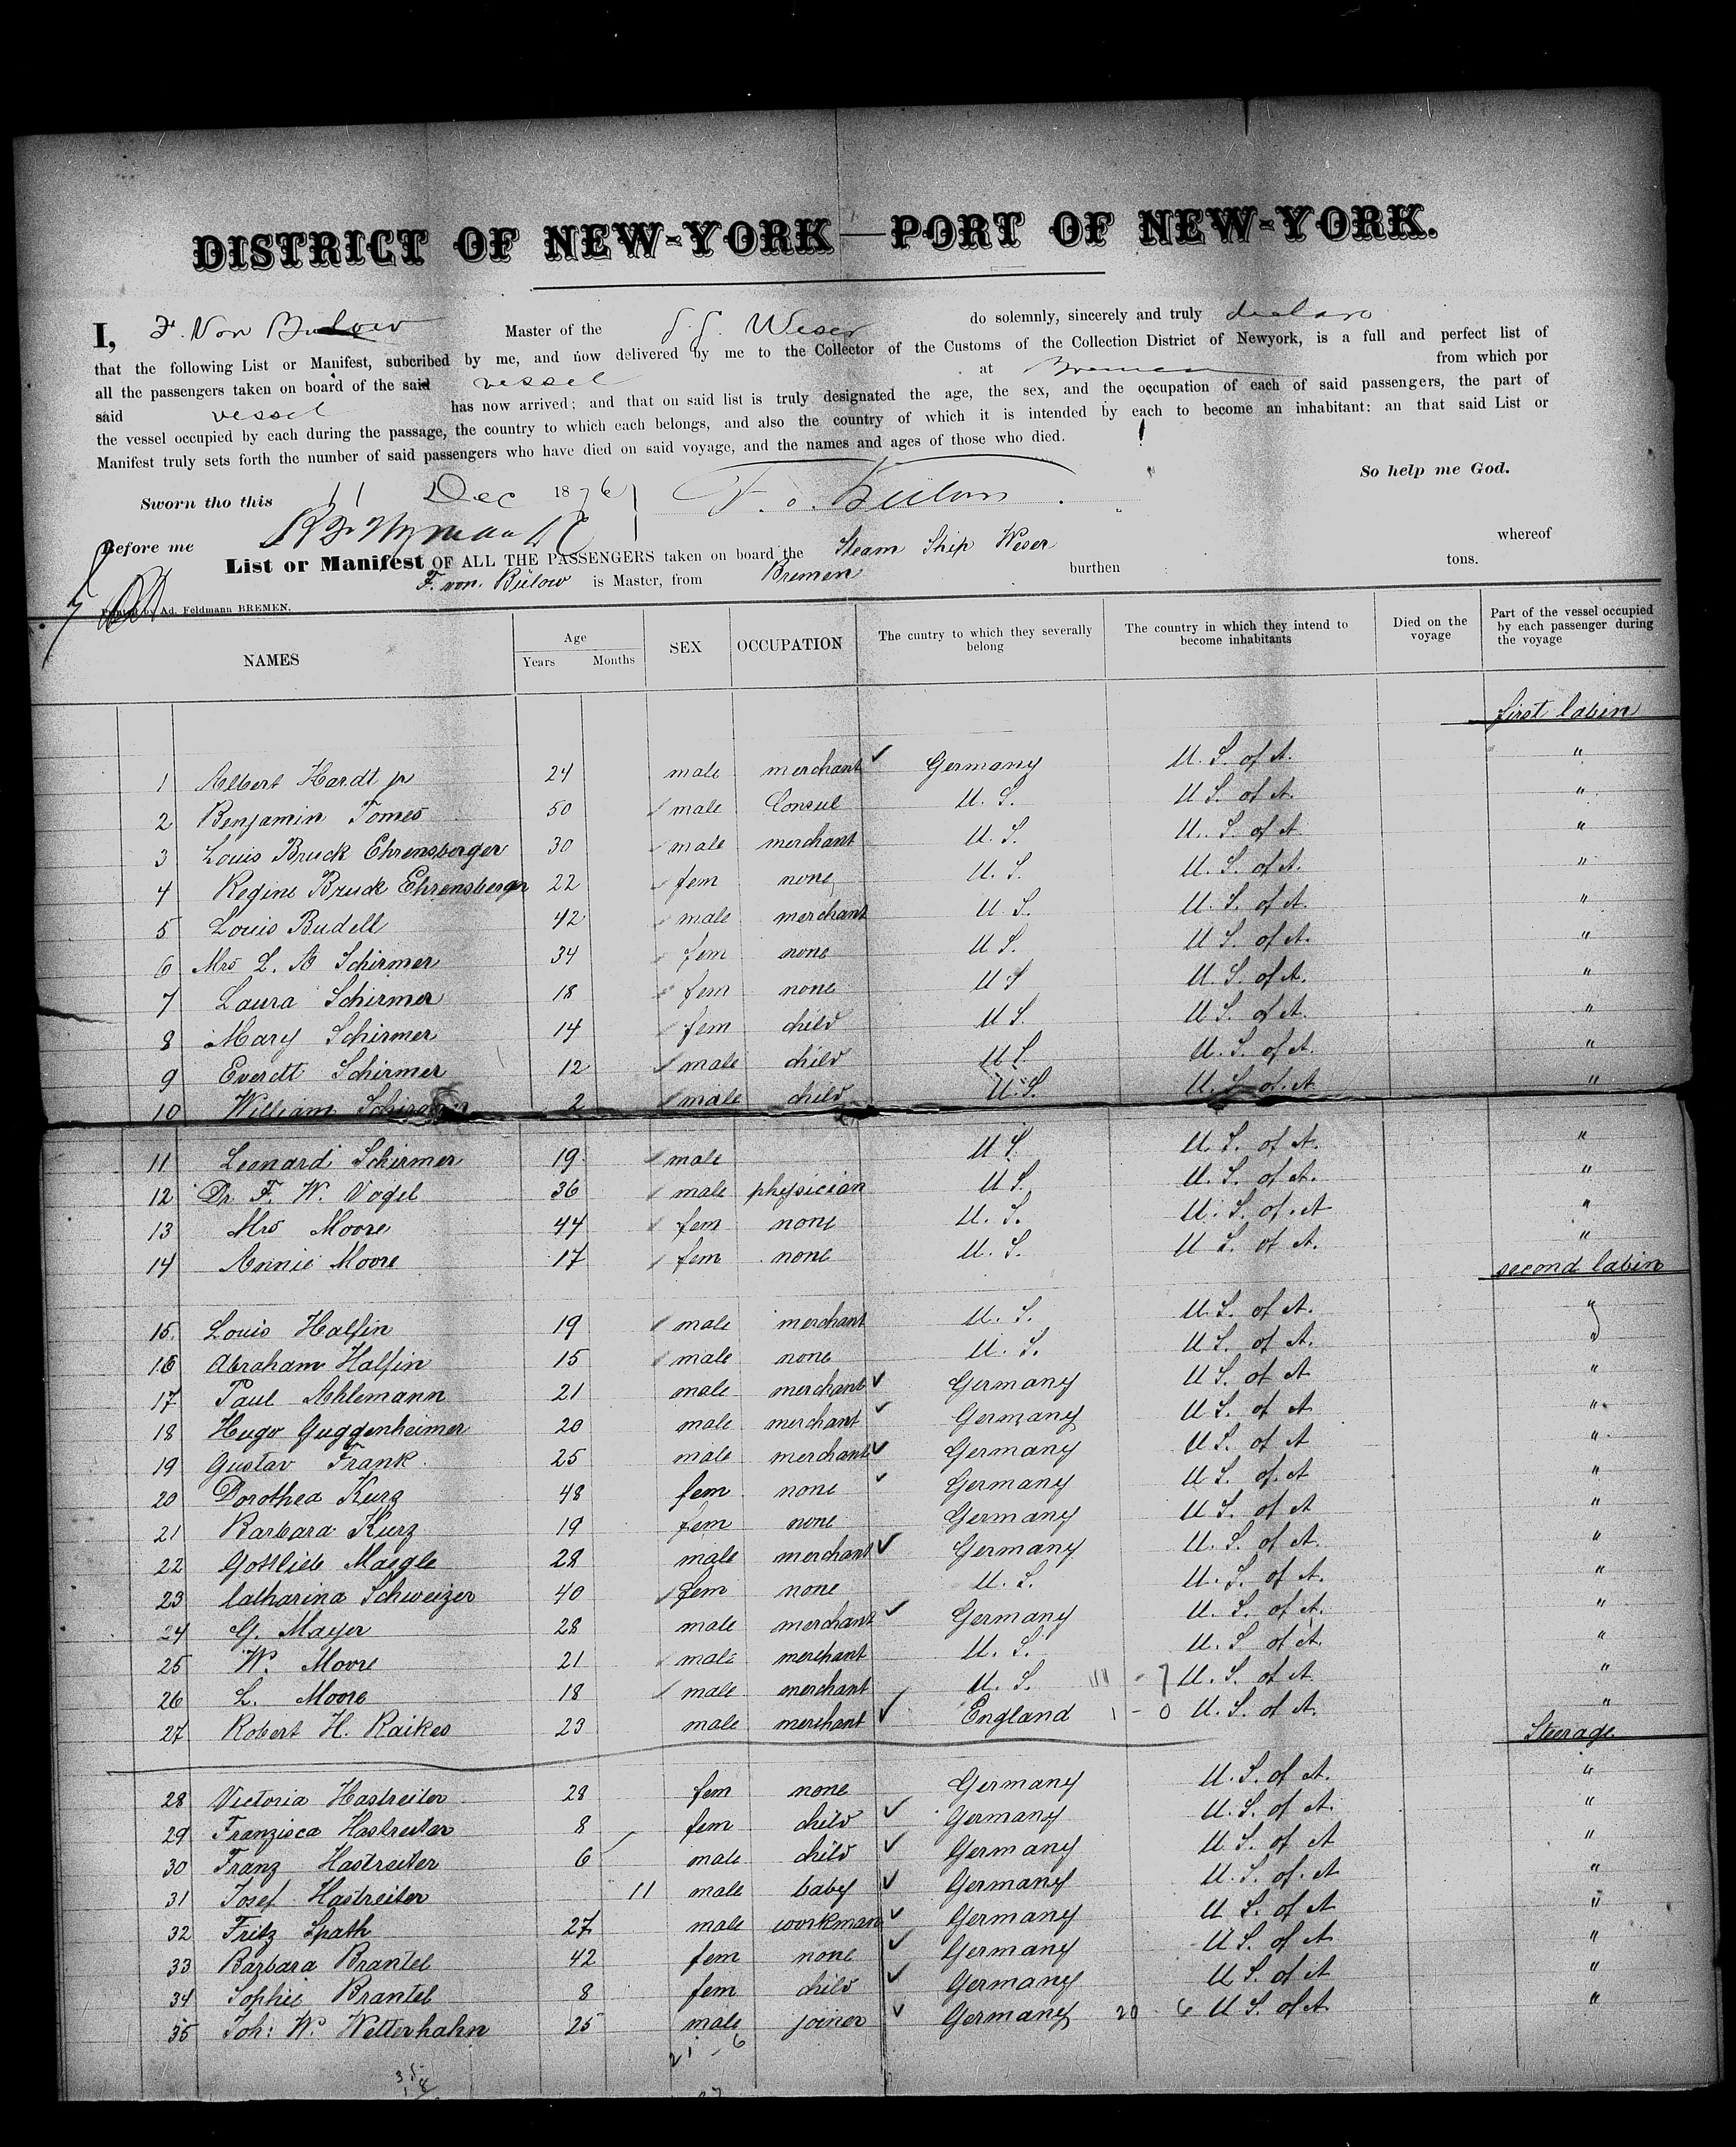 DISTRICT OF NEW-YORK—PORT OF NEW-YORK.
I, F. Von Bulow Master of the S.S. Weser do solemnly, sincerely and truly declare
that the following List or Manifest, subcribed by me, and now delivered by me to the Collector of the Customs of the Collection District of Newyork, is a full and perfect list of
all the passengers taken on board of the said vessel at Bremen from which por
said vessel has now arrived; and that on said list is truly designated the age, the sex, and the occupation of each of said passengers, the part of
the vessel occupied by each during the passage, the country to which each belongs, and also the country of which it is intended by each to become an inhabitant: an that said List or
Manifest truly sets forth the number of said passengers who have died on said voyage, and the names and ages of those who died.
So help me God.
Sworn tho this 11 Dec 1876 F. v. Bülow
Before me
List or Manifest OF ALL THE PASSENGERS taken on board the Steam Ship Weser whereof
F. von. Bülow is Master, from Bremen burthen tons.
Printed by Ad. Feldmann BREMEN.
NAMES Age Years Months SEX OCCUPATION The cuntry to which they severally belong The country in which they intend to become inhabitants Died on the voyage Part of the vessel occupied by each passenger during the voyage
first Cabin
1 Albert Hardt jr 24 male merchant Germany U. S. of A. "
2 Benjamin Tomes 50 male Consul U. S. U S. of A. "
3 Louis Bruck Ehrensberger 30 male merchant U. S. U. S. of A "
4 Regine Bruck Ehrensberger 22 fem none U. S. U. S. of A. "
5 Louis Budell 42 male merchant U S. U. S. of A. "
6 Mrs L. A Schirmer 34 fem none U S. U S. of A. "
7 Laura Schirmer 18 fem none U S U. S. of A. "
8 Mary Schirmer 14 fem child U S. U S. of A. "
9 Everett Schirmer 12 male child U S. U. S. of A. "
10 William Schirmer 2 male child U. S. U. S. of A "
11 Leonard Schirmer 19 male U S. U. S. of A. "
12 Dr. F. W. Vogel 36 male physician U S. U. S. of A. "
13 Mrs Moore 44 fem none U. S. U. S. of A "
14 Annie Moore 17 fem none U. S. U S. of A. "
second Cabin
15. Louis Halfin 19 male merchant U. S. U S. of A. "
16 Abraham Halfin 15 male none U. S. U S. of A. "
17 Paul Ahlemann 21 male merchant Germany U S. of A "
18 Hugo Guggenheimer 20 male merchant Germany U S. of A "
19 Gustav Frank 25 male merchant Germany U S. of A "
20 Dorothea Kurz 48 fem none Germany U S. of A "
21 Barbara Kurz 19 fem none Germany U S. of A "
22 Gottlieb Maegle 28 male merchant Germany U. S. of A. "
23 Catharina Schweizer 40 fem none U. S. U. S. of A. "
24 G. Mayer 28 male merchant Germany U. S. of A. "
25 W. Moore 21 male merchant U. S. U. S of A. "
26 L. Moore 18 male merchant U. S. - 7 U. S. of A "
27 Robert H. Raikes 23 male merchant England 1 - 0 U. S. of A. "
Steerage
28 Victoria Hastreiter 29 fem none Germany U. S. of A. "
29 Franzisca Hastreiter 8 fem child Germany U. S. of A. "
30 Franz Hastreiter 6 male child Germany U S. of A "
31 Josef Hastreiter 11 male baby Germany U. S. of A "
32 Fritz Spath 27 male workman Germany U S. of A "
33 Barbara Brantel 42 fem none Germany U S. of A "
34 Sophie Brantel 8 fem child Germany U S. of A "
35 Joh: W. Wetterhahn 25 male joiner Germany 20 - 6 U S. of A "
21 - 6